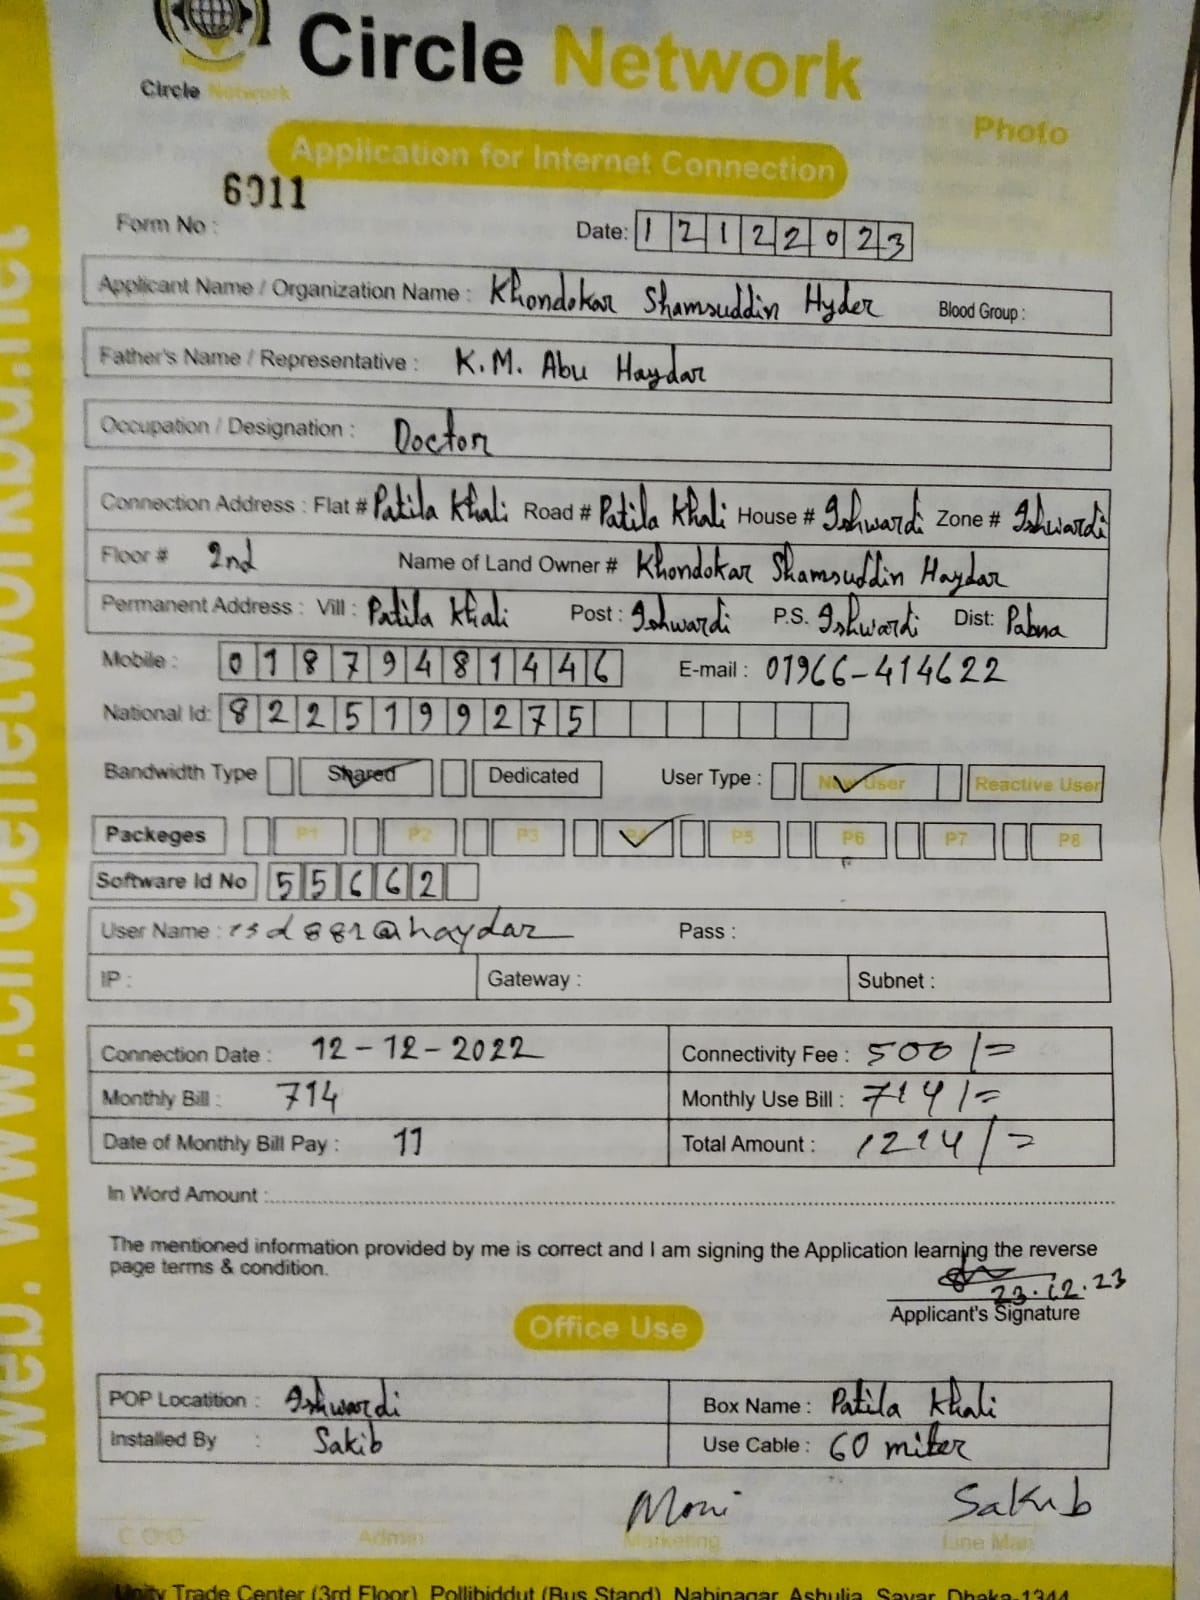 Circle Network
Circle Network
Photo
Application for Internet Connection
6011
Form No :
Date: 12122023
Applicant Name / Organization Name : Khondokar Shamsuddin Hyder Blood Group :
Father's Name / Representative : K.M. Abu Haydar
Occupation / Designation : Doctor
Connection Address : Flat # Patila Khali Road # Patila Khali House # Ishwardi Zone # Ishwardi
Floor # 2nd Name of Land Owner # Khondokar Shamsuddin Haydar
Permanent Address : Vill : Patila Khali Post : Ishwardi P.S. Ishwardi Dist: Pabna
Mobile : 01879481446 E-mail : 01966-414622
National Id: 8225199275
Bandwidth Type Shared Dedicated User Type : New User Reactive User
Packeges P1 P2 P3 P4 P5 P6 P7 P8
Software Id No 55662
User Name : @haydar Pass :
IP : Gateway : Subnet :
Connection Date : 12-12-2022 Connectivity Fee : 500/=
Monthly Bill : 714 Monthly Use Bill : 714/=
Date of Monthly Bill Pay : 11 Total Amount : 1214/=
In Word Amount :
The mentioned information provided by me is correct and I am signing the Application learning the reverse
page terms & condition.
23.12.23
Applicant's Signature
Office Use
POP Locatition : Ishwardi Box Name : Patila Khali
Installed By : Sakib Use Cable : 60 miter
Moni Sakib
C O O Admin Marketing Line Man
Unity Trade Center (3rd Floor), Pollibiddut (Bus Stand), Nabinagar, Ashulia, Savar, Dhaka-1344
web: www.circlenetworkbd.net